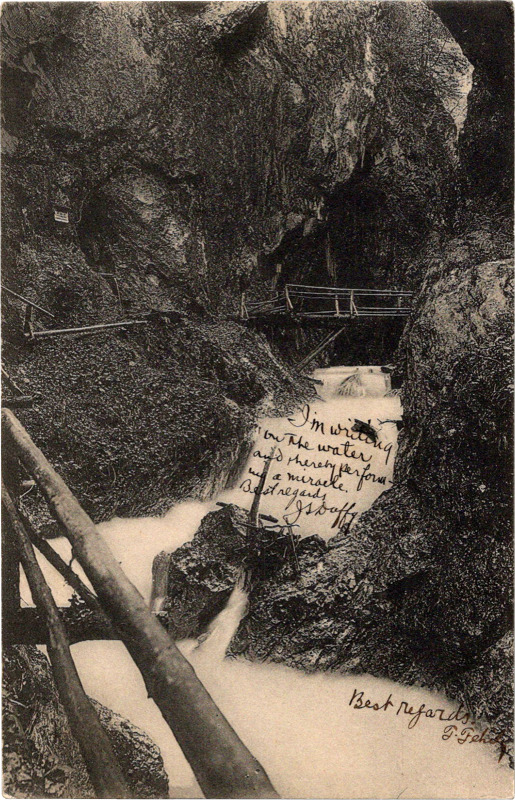 I'm writing
on the water
and thereby perform-
ing a miracle.
Best regards
JS Duffy
Best regards